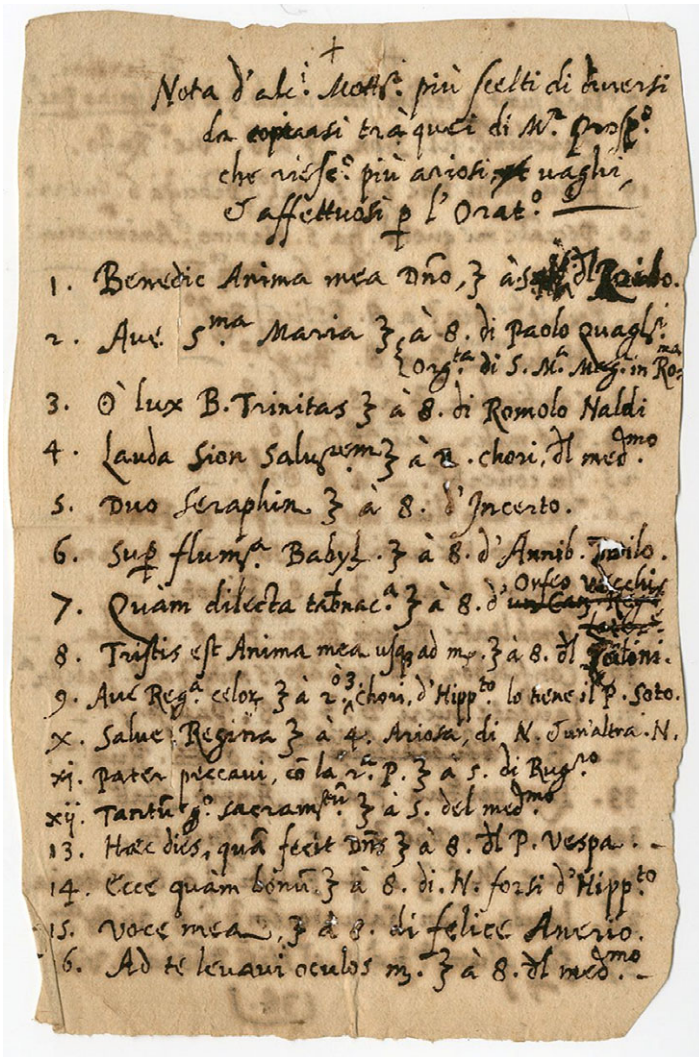 +
Nota d'alc.i Mott.i più scelti di diversi
da copiarsi trà quei di M.r Prosp.o
che riesc.o più ariosi, vaghi,
& affettuosi p l'Orat.o
1. Benedic Anima mea Dño, ʒ à 8. dl
2. Ave S.ma Maria ʒ, à 8. di Paolo Quagl.i
Org.ta di S. M.a Mag. in Ro.ma
3. Ò lux B. Trinitas ʒ à 8. di Romolo Naldi
4. Lauda Sion Salv.rem ʒ à 2. chori, dl med.mo
5. Duo Seraphin ʒ à 8. d'Incerto.
6. Sup flum.a Babyl. ʒ à 8. d'Annib.
Orfeo Vecchi
7. Quàm dilecta tabnac.a ʒ à 8. d'
8. Tristis est Anima mea usq ad m. ʒ à 8. dl
9. Ave Reg.a celor ʒ à 2. ò 3. chori, d'Hipp.to lo tiene il P. Soto.
x. Salve Regina ʒ à 4. Ariosa, di N. & un'altra N.
xi. Pater peccavi, cõ la 2.a P. ʒ à 5. di Rug.ro
xij. Tantũ g.o sacram.tũ ʒ à 5. del med.mo
13. Hæc dies, quã fecit Dñs ʒ à 8. dl P. Vespa. -
14. Ecce quàm bonũ. ʒ à 8. di. N. forsi d'Hipp.to
15. Voce mea, ʒ à 8. di felice Anerio.
16. Ad te levavi oculos m. ʒ à 8. dl med.mo -